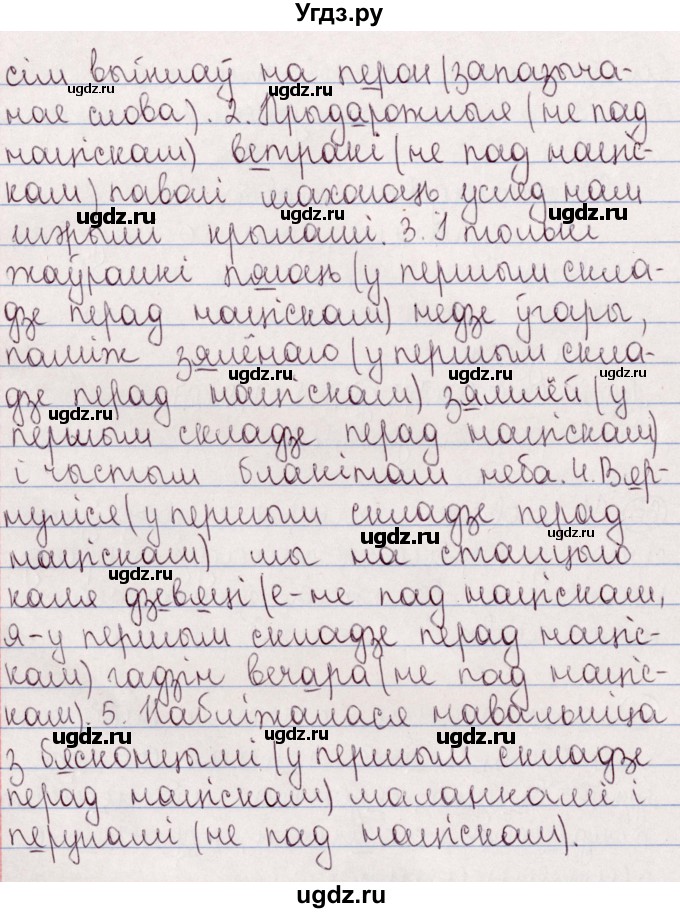 Угдз.ру
сім выйшаў на перон (запазыча-
нае слова). 2. Прыдарожныя (не пад
націскам) ветракі (не пад націс-
кам) паволі махаюць услед нам
шэрымі крыламі. 3. І толькі
жаўранкі пяюць (у першым скла-
дзе перад націскам) недзе ўгары,
паміж зялёнаю (у першым скла-
дзе перад націскам) зямлёй (у
першым складзе перад націскам)
і чыстым блакітам неба. 4. Вяр-
нуліся (у першым складзе перад
націскам) мы на станцыю
каля дзевяці (е-не пад націскам,
я-у першым складзе перад націс-
кам) гадзін вечара (не пад націс-
кам). 5. Набліжалася навальніца
з бясконцымі (у першым складзе
перад націскам) маланкамі і
перунамі (не пад націскам).
ugdz.ru